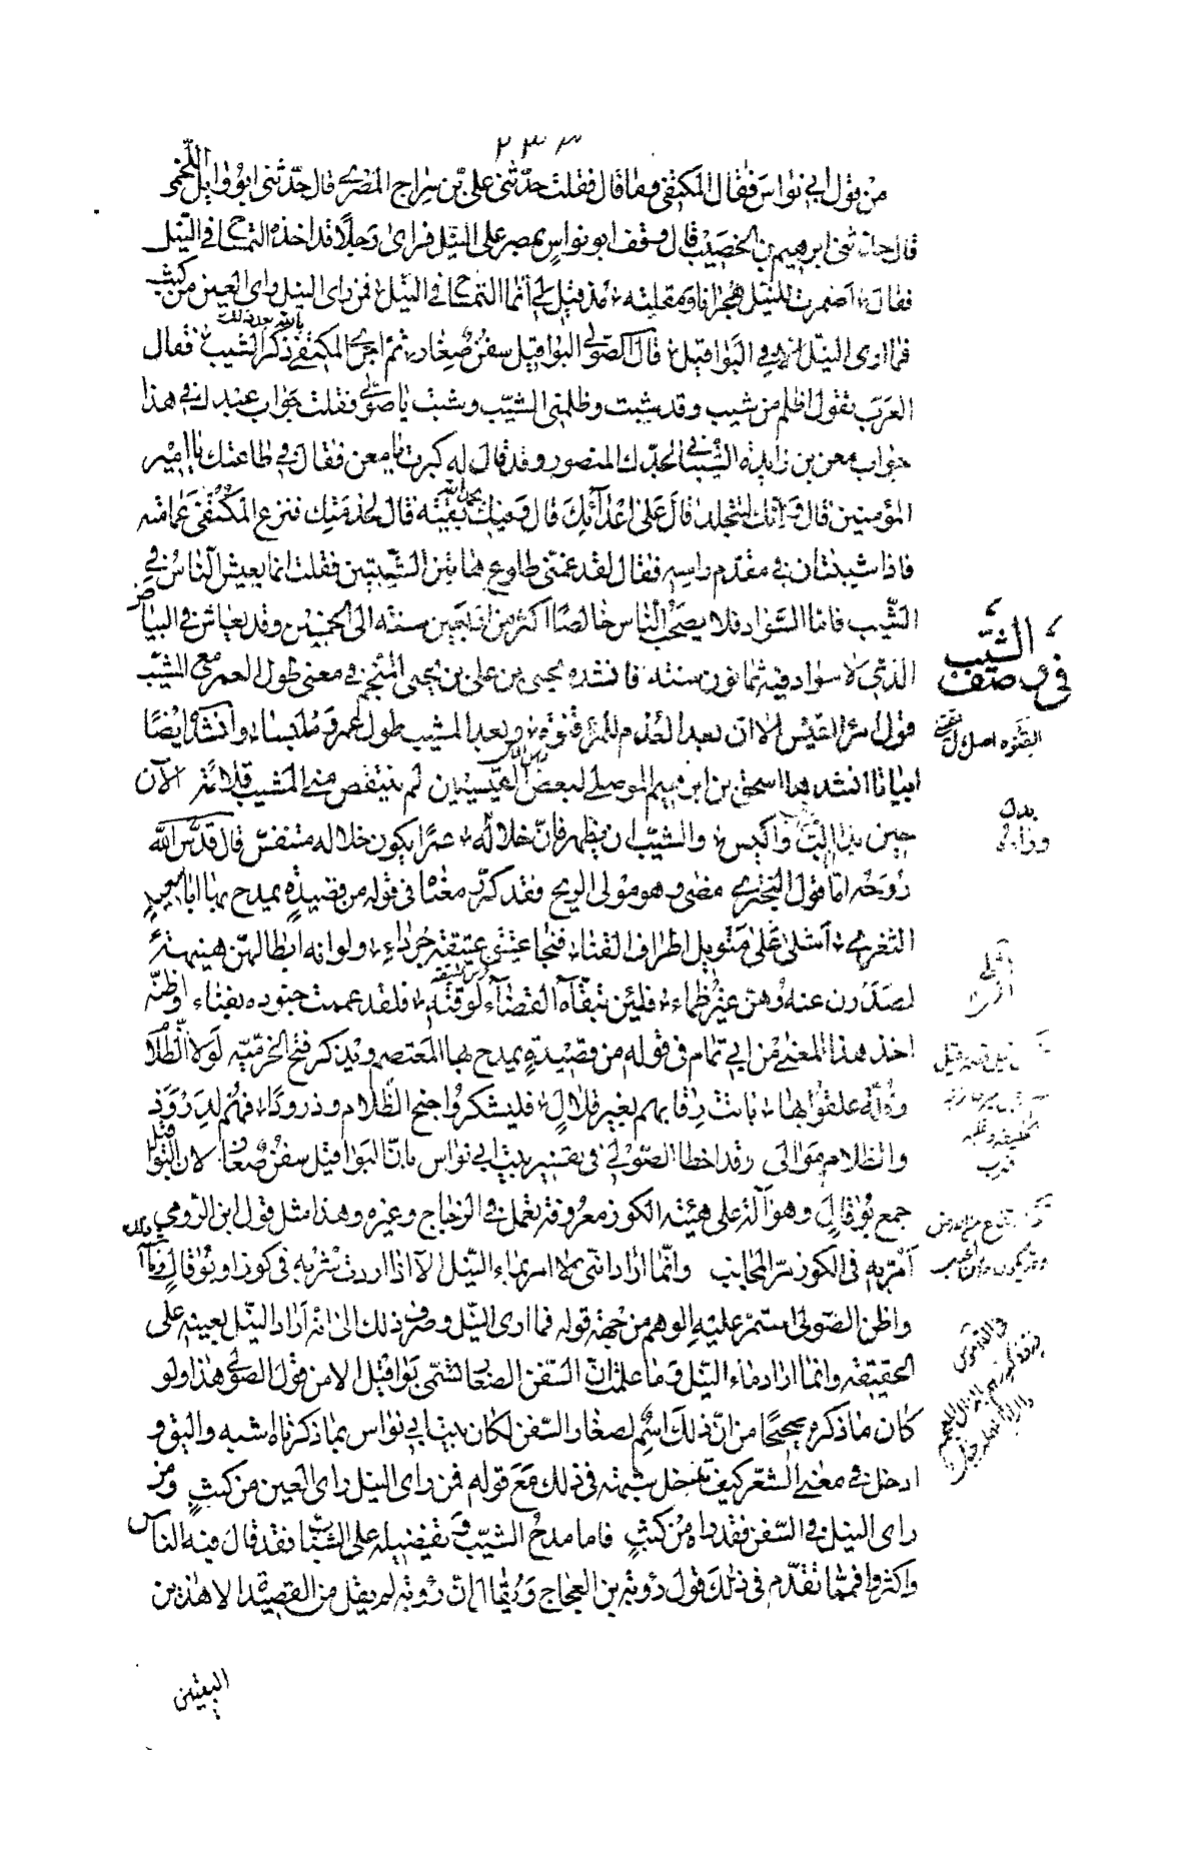 ٢٣٣
من قول ابي نواس فقال المكتفي وما قال فقلت حدثني علي بن سراج المصري قال حدثني ابو وايل اللخمي
قال حدثني ابرهيم بن الخصيب قال وقف ابو نواس بمصر على النيل فراى رجلا قد اخذه التمساح في النيل
فقال اضمرت للنيل هجرانا ومقلية مذ قيل لي انما التمساح في النيل فمن راى النيل راى العين من كثب
فما ارى النيل الا في البواقيل قال الصولي البواقيل سفن صغار ثم اجرى المكتفي ذكر الشيب فقال
العرب تقول اظلم من شيب وقد شبت وظلمني الشيب وشبت يا صولي فقلت جواب عبدك في هذا
جواب معن بن زايدة الشيباني لجدك المنصور وقد قال له كبرت يا معن فقال في طاعتك يا امير
المؤمنين قال وانك لتتجلد قال على اعدآئك قال وفيك بقية قال لخدمتك فنزع المكتفي عمامته
فاذا شيبتان في مقدم راسه فقال لقد غمني طلوع هاتين الشيبتين فقلت انما يعيش الناس في
الشيب فاما السواد فلا يصحب الناس خالصا اكثر من اربعين سنة الى الخمسين وقد يعاش في البياض
الذي لا سواد فيه ثمانون سنة فانشده يحيى بن علي بن يحيى المنجم في معنى طول العمر مع الشيب
قول امرئ القيس الا ان بعد العدم للمرء قنوة وبعد المشيب طول عمر وملبسا وانشد ايضا
ابياتا انشد بها اسحق بن ابرهيم الموصلي لبعض القيسيين لم ينتقص مني المشيب قلامة الآن
حين بدا الب واكيس والشيب ان يظهر فان خلاله عمرا يكون خلاله متنفس قال قدس الله
روحه اما قول البحتري مضى وهو مولى الريح فقد كرر معناه في قوله من قصيدة يمدح بها ابا سعيد
الثغري اشلى على منويل اطراف القنا فنجا عتيق عتيقة جرداء ولو انه ابطا لهن هنيهة
لصدرن عنه وهن غير ظماء فلئن تبقاه القضآء لوقته فلقد عممت جنوده بفناء واظنه
اخذ هذا المعنى من ابي تمام في قوله من قصيدة يمدح بها المعتصم ويذكر فتح الخرمية لولا الظلام
وقلة علقوا بها باتت رقابهم بغير قلال فليشكروا جنح الظلام ودرودا فهم لدرود
والظلام موالي وقد اخطا الصولي في تفسير بيت ابي نواس بان البواقيل سفن صغار لان البواقيل
جمع بوقال وهو آلة على هيئة الكوز معروفة تعمل في الزجاج وغيره وهذا مثل قول ابن الرومي
امر به في الكوز مر المجانب وانما اراد انني لا امر بماء النيل الا اذا اردت شربه في كوز او بوقال
واظن الصولي استمر عليه الوهم من جهة قوله فما ارى النيل وصرف ذلك الى انه اراد النيل بعينه على
الحقيقة وانما اراد ماء النيل وما علمت ان السفن الصغار تسمى بواقيل الا من قول الصولي هذا ولو
كان ما ذكره صحيحا من ان ذلك اسم لصغار السفن لكان بيت ابي نواس بما ذكرناه اشبه واليق و
ادخل في معنى الشعر كيف تدخل شبهة في ذلك مع قوله فمن راى النيل راى العين من كثب ومن
راى النيل في السفن فقد راه من كثب فاما مدح الشيب وتفضيله على الشباب فقد قال فيه الناس
واكثروا فمما تقدم في ذلك قول رؤبة بن العجاج ويقال ان رؤبة لم يقل من القصيد الا هذين
البيتين
الشيب
في وصف
بدل